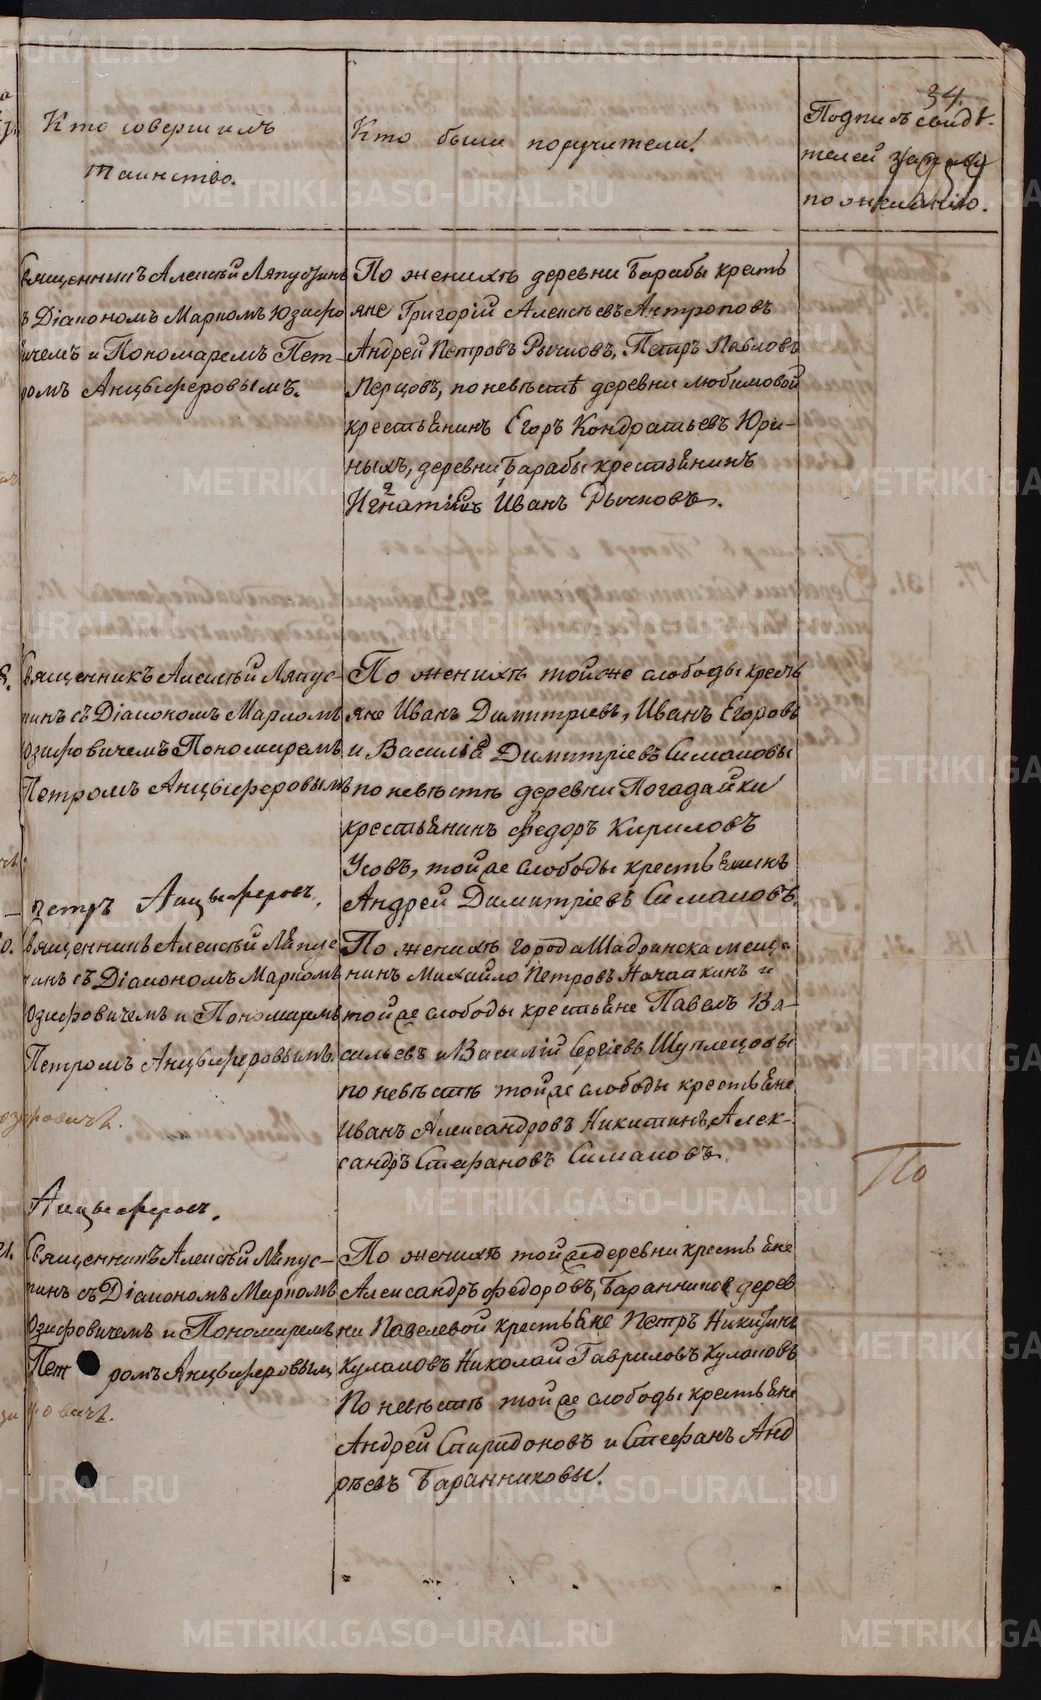 34.
Кто совершилъ
таинство.
Кто были поручители.
Подпись свидѣ-
телей записи
по желанію.
Священникъ Алексѣй Ляпустинъ
съ Діакономъ Маркомъ Юзефо
вичемъ и Пономаремъ Пет-
ромъ Анцыферовымъ.
По женихѣ деревни Барабы кресть
яне Григорій Алексѣевъ Антроповъ
Андрей Петровъ Рычковъ, Петръ Павловъ
Перцовъ, по невѣстѣ деревни Любимовой
крестьянинъ Егоръ Кондратьевъ Юри-
ныхъ, деревни Барабы крестьянинъ
Игнатій Иванъ Рычковъ.
8.
Священникъ Алексѣй Ляпус-
тинъ съ Діакономъ Маркомъ
Озифовичемъ Пономаремъ
Петромъ Анцыферовымъ
По женихѣ тойже слободы кресть
яне Иванъ Димитріевъ, Иванъ Егоровъ
и Василій Димитріевъ Симаковы
по невѣстѣ деревни Погадайки
крестьянинъ Федоръ Кириловъ
Усовъ, тойже слободы крестьянинъ
Андрей Димитріевъ Симаковъ.
Петръ Анцыферовъ.
Священникъ Алексѣй Ляпус
тинъ съ Діакономъ Маркомъ
Озифовичемъ и Пономаремъ
Петромъ Анцыферовымъ.
По женихѣ города Шадринска меща
нинъ Михайло Петровъ Начапкинъ и
тойже слободы крестьяне Павелъ Ва-
сильевъ и Василій Сергіевъ Шуплецовы
по невѣстѣ тойже слободы крестьяне
Иванъ Александровъ Никитинъ, Алек-
сандръ Стефановъ Симаковъ.
Анцыферовъ.
По
21.
Священникъ Алексѣй Ляпус-
тинъ съ Діакономъ Маркомъ
Озифовичемъ и Пономаремъ
Петромъ Анцыферовым
По женихѣ тойже деревни крестьяне
Александръ Федоровъ, Баранниковъ дерев
ни Павелевой крестьяне Петръ Никитинъ
Кулаковъ Николай Гавриловъ Кулаковъ
По невѣстѣ тойже слободы крестьяне
Андрей Спиридоновъ и Стефанъ Анд
рѣевъ Баранниковы.
METRIKI.GASO-URAL.RU